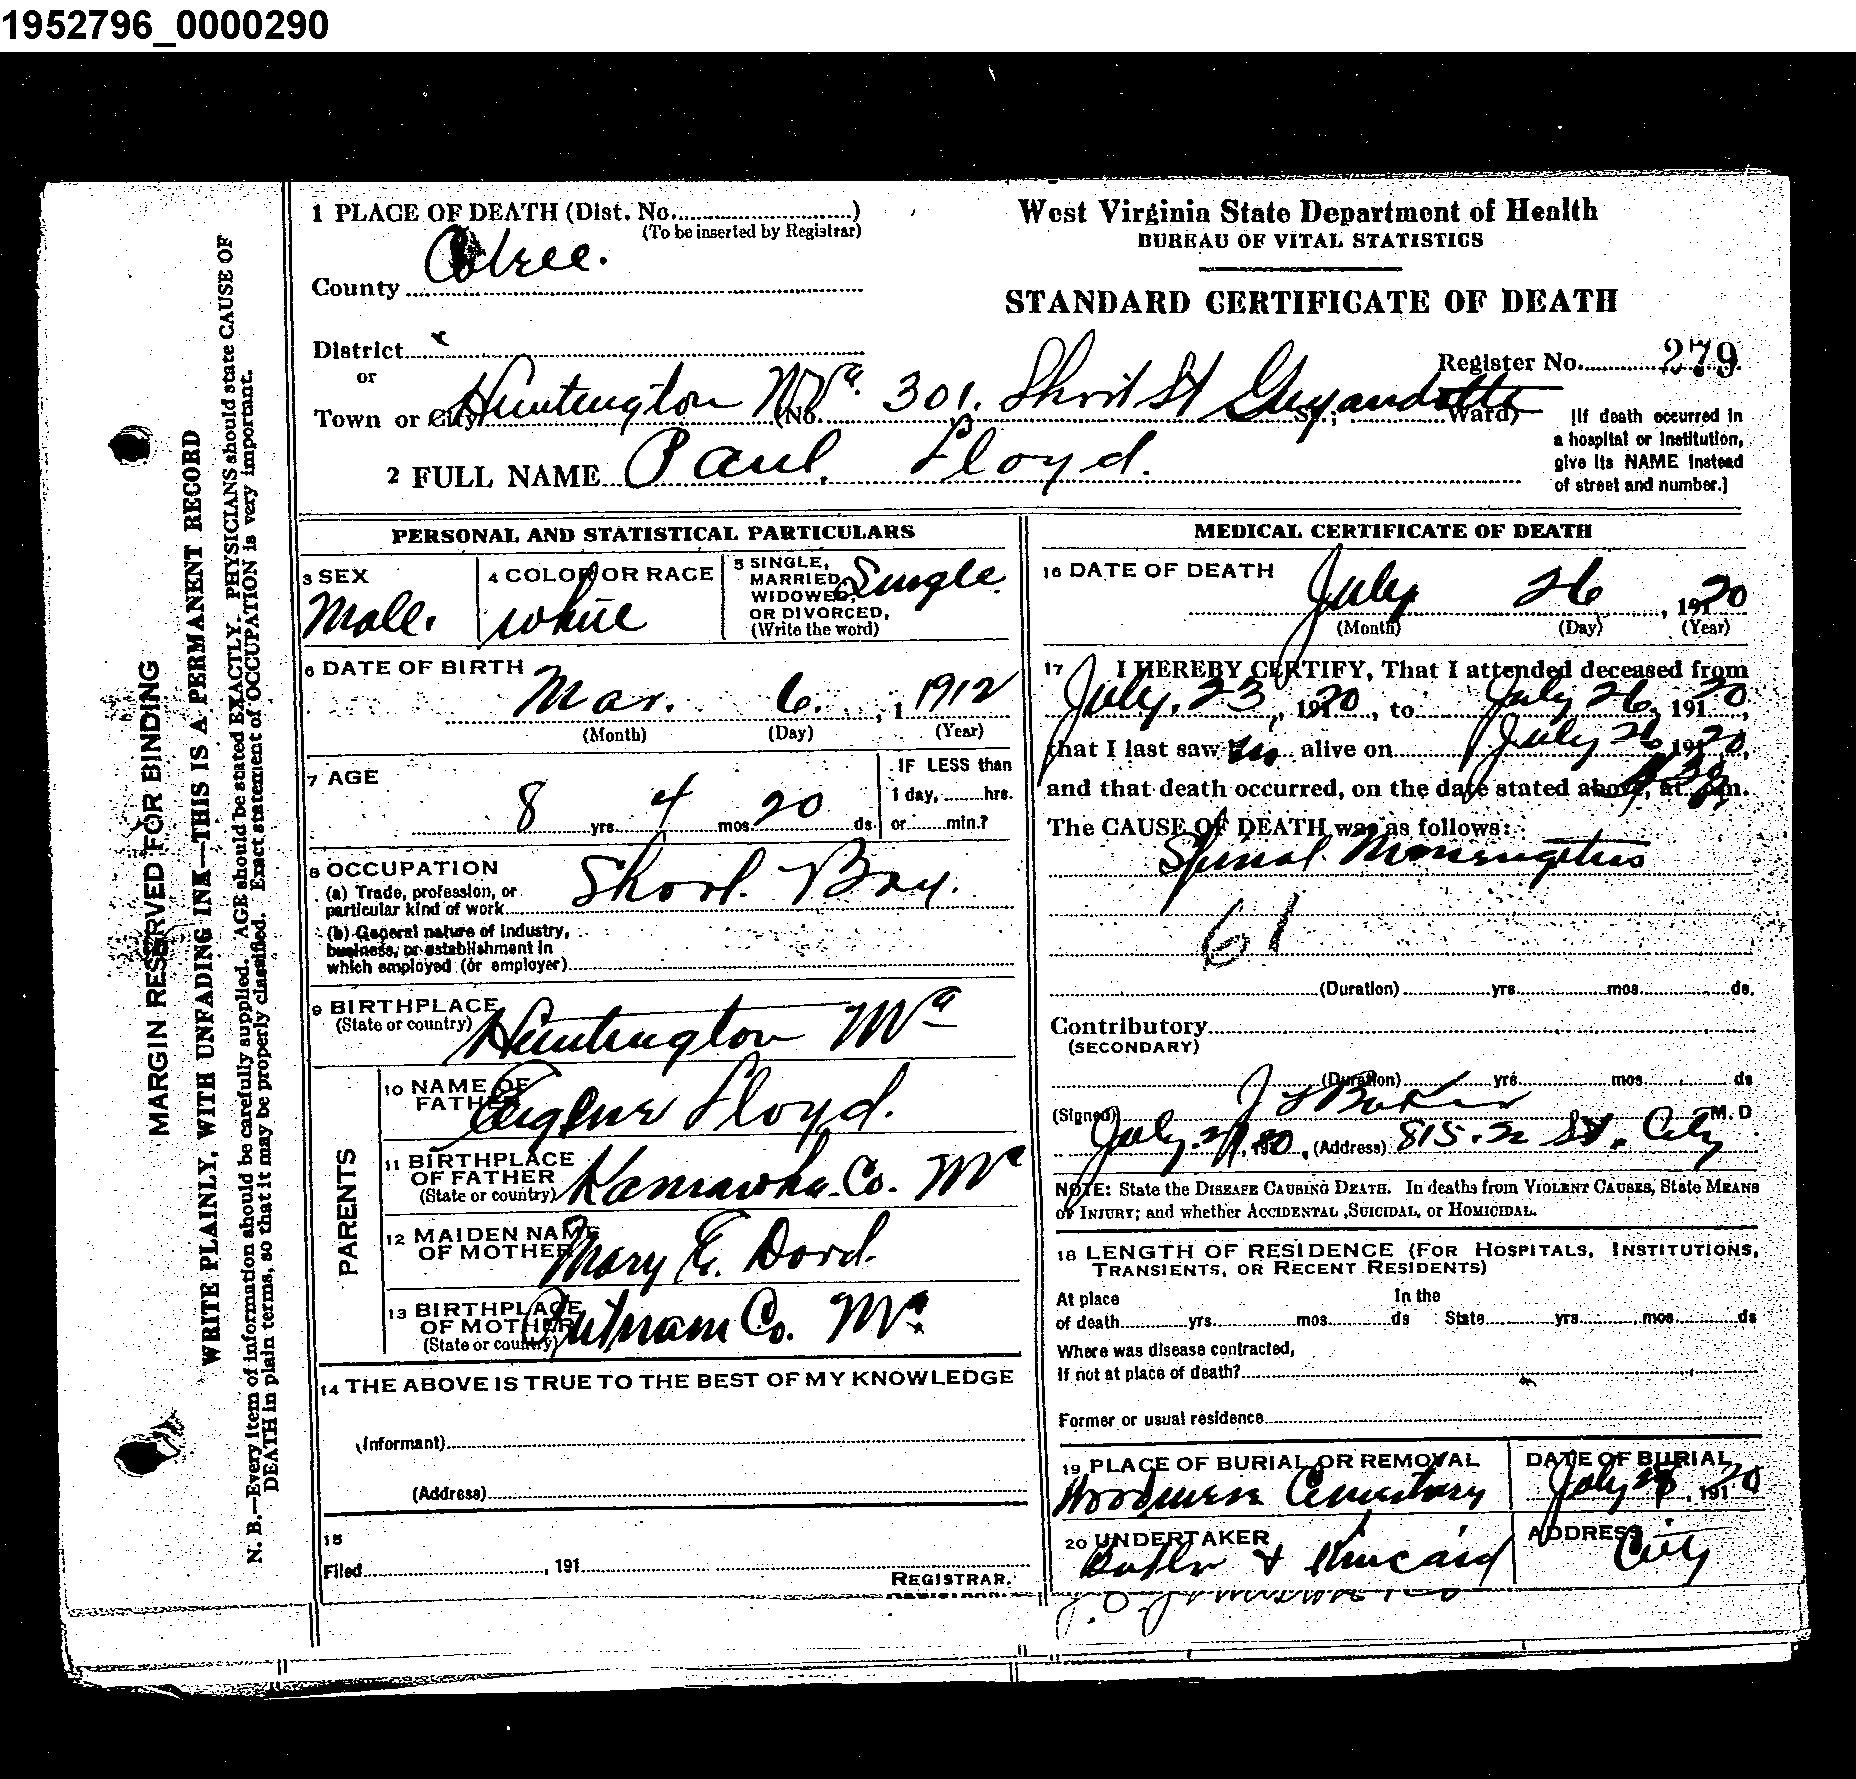 1952796_0000290
MARGIN RESERVED FOR BINDING
WRITE PLAINLY, WITH UNFADING INK—THIS IS A PERMANENT RECORD
N. B.—Every item of information should be carefully supplied. AGE should be stated EXACTLY. PHYSICIANS should state CAUSE OF
DEATH in plain terms, so that it may be properly classified. Exact statement of OCCUPATION is very important.
1 PLACE OF DEATH (Dist. No..............................)
(To be inserted by Registrar)
County
District
or
Town or City Huntington W Va. (No. 301. Short St Guyandotte St.; Ward)
West Virginia State Department of Health
BUREAU OF VITAL STATISTICS
STANDARD CERTIFICATE OF DEATH
Register No. 279
[If death occurred in
a hospital or institution,
give its NAME instead
of street and number.]
2 FULL NAME Paul Floyd.
PERSONAL AND STATISTICAL PARTICULARS
3 SEX
Male.
4 COLOR OR RACE
White
5 SINGLE,
MARRIED,
WIDOWED,
OR DIVORCED,
(Write the word)
Single.
6 DATE OF BIRTH
Mar. 6. , 1 1912
(Month) (Day) (Year)
7 AGE
8 yrs. 4 mos. 20 ds
IF LESS than
1 day, ........hrs.
or ........min.?
8 OCCUPATION
(a) Trade, profession, or
particular kind of work
(b) General nature of industry,
business, or establishment in
which employed (or employer)
9 BIRTHPLACE
(State or country) Huntington W Va
PARENTS
10 NAME OF
FATHER Eugene Floyd.
11 BIRTHPLACE
OF FATHER
(State or country) Kanawha Co. W Va
12 MAIDEN NAME
OF MOTHER Mary E.
13 BIRTHPLACE
OF MOTHER
(State or country) Putnam Co. W Va
14 THE ABOVE IS TRUE TO THE BEST OF MY KNOWLEDGE
(Informant)
(Address)
15
Filed , 191
REGISTRAR.
MEDICAL CERTIFICATE OF DEATH
16 DATE OF DEATH
July 26 , 191 20
(Month) (Day) (Year)
17 I HEREBY CERTIFY, That I attended deceased from
July. 23, 191 20, to July 26, 191 20,
that I last saw him alive on July 26 191 20,
and that death occurred, on the date stated above, at m.
The CAUSE OF DEATH was as follows:
Spinal Menengitus
61
(Duration) yrs. mos. ds.
Contributory
(SECONDARY)
(Duration) yrs. mos. ds
(Signed) M. D
July. 191 20, (Address) 815. 22 St. City
NOTE: State the DISEASE CAUSING DEATH. In deaths from VIOLENT CAUSES, State MEANS
OF INJURY; and whether ACCIDENTAL, SUICIDAL, or HOMICIDAL.
18 LENGTH OF RESIDENCE (FOR HOSPITALS, INSTITUTIONS,
TRANSIENTS, OR RECENT RESIDENTS)
At place In the
of death yrs. mos. ds State yrs. mos. ds
Where was disease contracted,
If not at place of death?
Former or usual residence
19 PLACE OF BURIAL OR REMOVAL
Woodmere Cemetary
DATE OF BURIAL
July , 191 20
20 UNDERTAKER
& Kincaid
ADDRESS
City